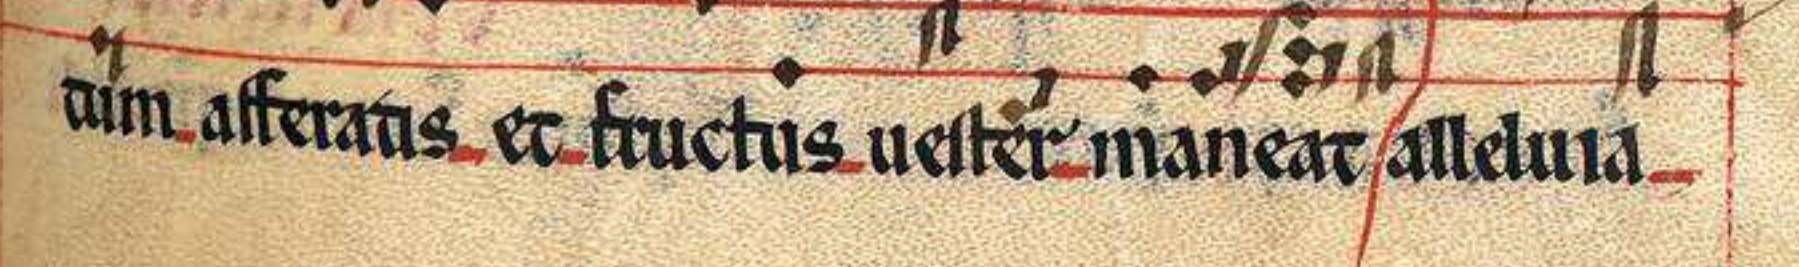 tum afferatis et fructus uester maneat alleluia